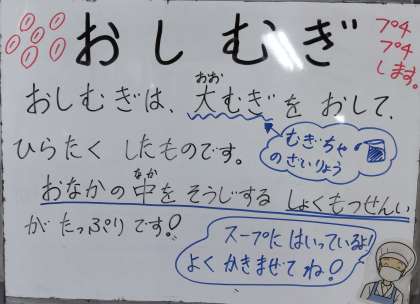 おしむぎ
プチ
プチ
します。
おしむぎは、大むぎを おして、
おお
ひらたく したものです。
むぎちゃ
のざいりょう
おなかの中を そうじする しょくもつせんい
なか
が たっぷり です!
スープに はいっているよ!
よく かきまぜて ね!